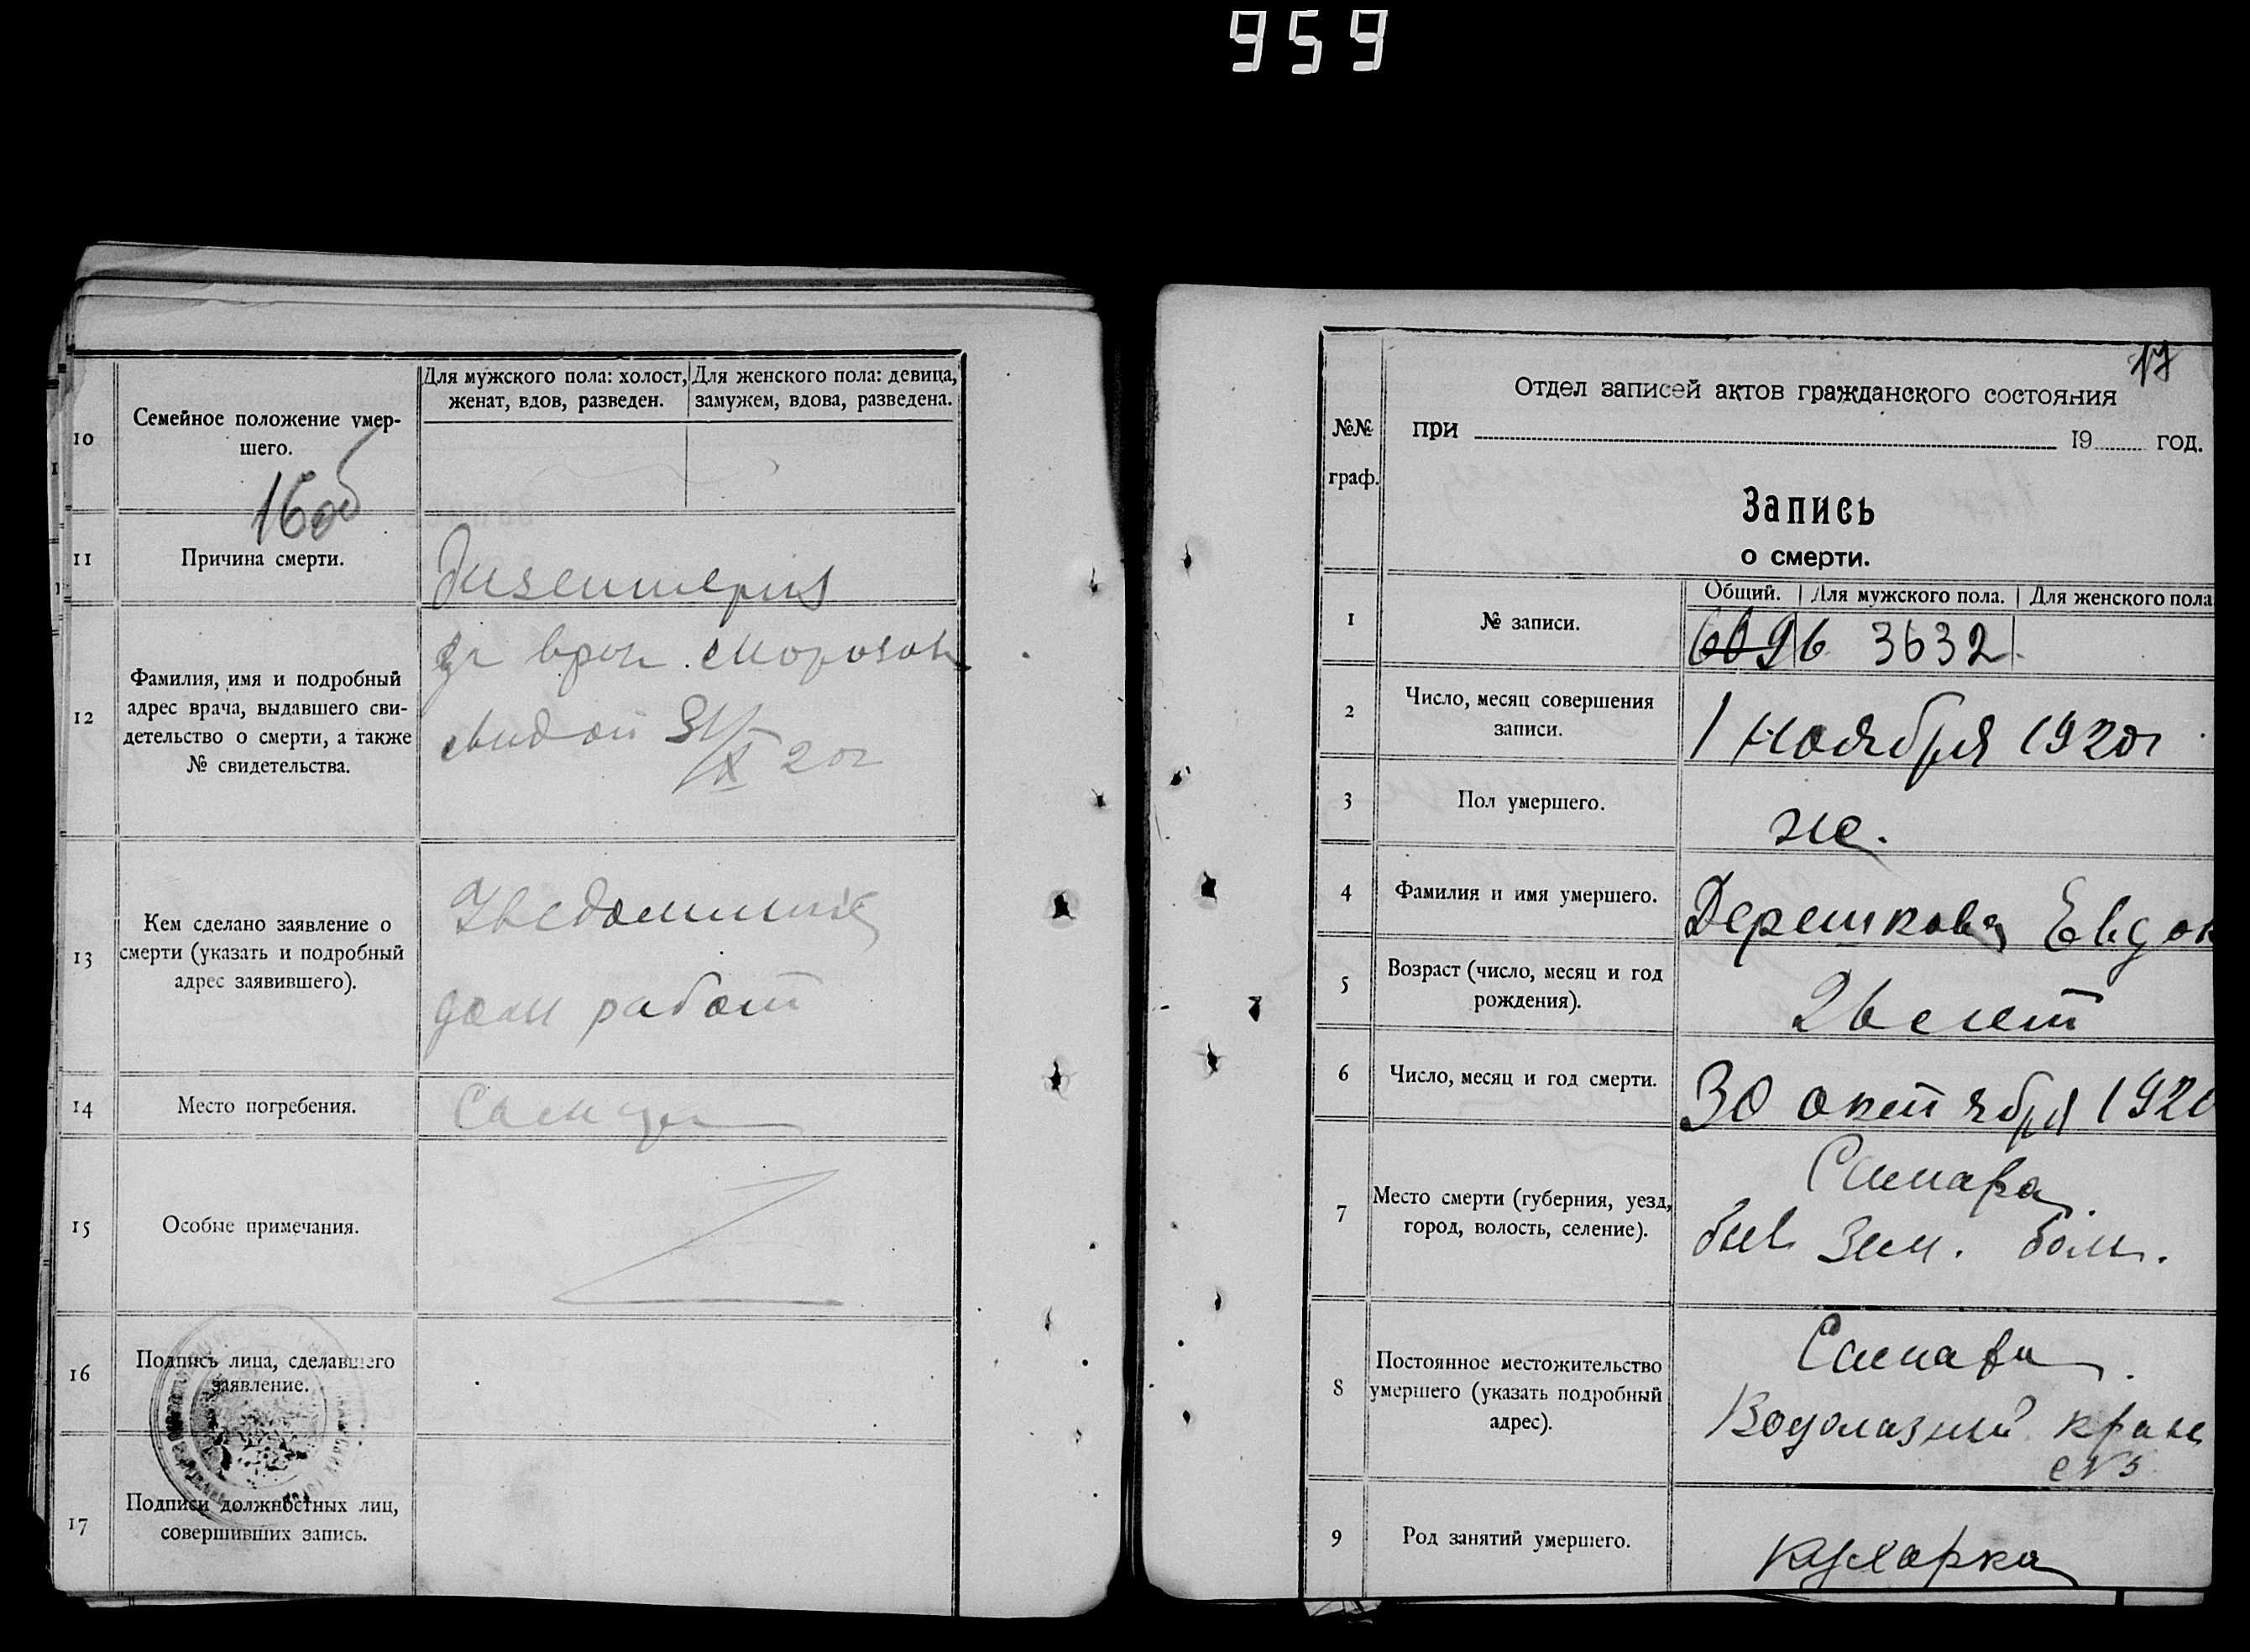 959
10
Семейное положение умер-
шего.
Для мужского пола: холост,
женат, вдов, разведен.
Для женского пола: девица,
замужем, вдова, разведена.
16об
11
Причина смерти.
дизентерия
12
Фамилия, имя и подробный
адрес врача, выдавшего сви-
детельство о смерти, а также
№ свидетельства.
врач Морозов
31/X 20г
13
Кем сделано заявление о
смерти (указать и подробный
адрес заявившего).
Уведомление
дом работ
14
Место погребения.
15
Особые примечания.
16
Подпись лица, сделавшего
заявление.
17
Подписи должностных лиц,
совершивших запись.
17
№№
граф.
Отдел записей актов гражданского состояния
при 19 год.
Запись
о смерти.
Общий. Для мужского пола. Для женского пола
1
№ записи.
6096 3632
2
Число, месяц совершения
записи.
1 Ноября 1920г
3
Пол умершего.
же.
4
Фамилия и имя умершего.
Дерешкова Евдок
5
Возраст (число, месяц и год
рождения).
26 лет
6
Число, месяц и год смерти.
30 октября 1920
7
Место смерти (губерния, уезд,
город, волость, селение).
Самара
быв Зем. боль.
8
Постоянное местожительство
умершего (указать подробный
адрес).
Самара
Водолазный кран
№3
9
Род занятий умершего.
кухарка